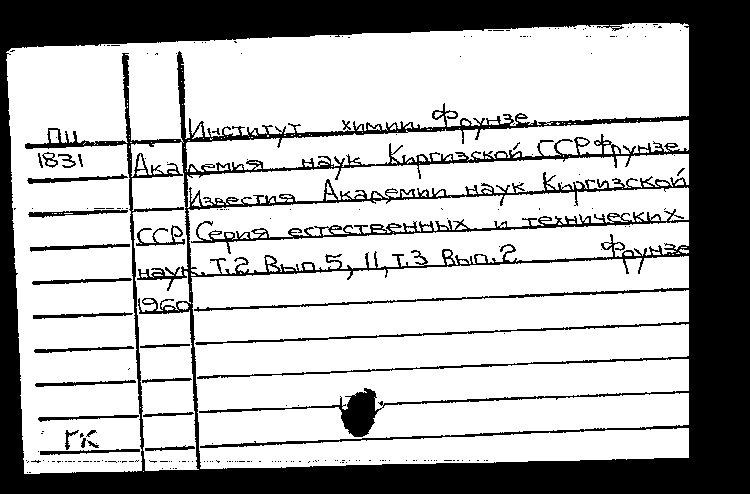 Институт химии. Фрунзе.
ПII
1831
Академия наук Киргизской ССР. Фрунзе.
Известия Академии наук Киргизской
ССР. Серия естественных и технических
наук. Т.2. Вып.5, 11, т.3 Вып.2. Фрунзе
1960.
ГК